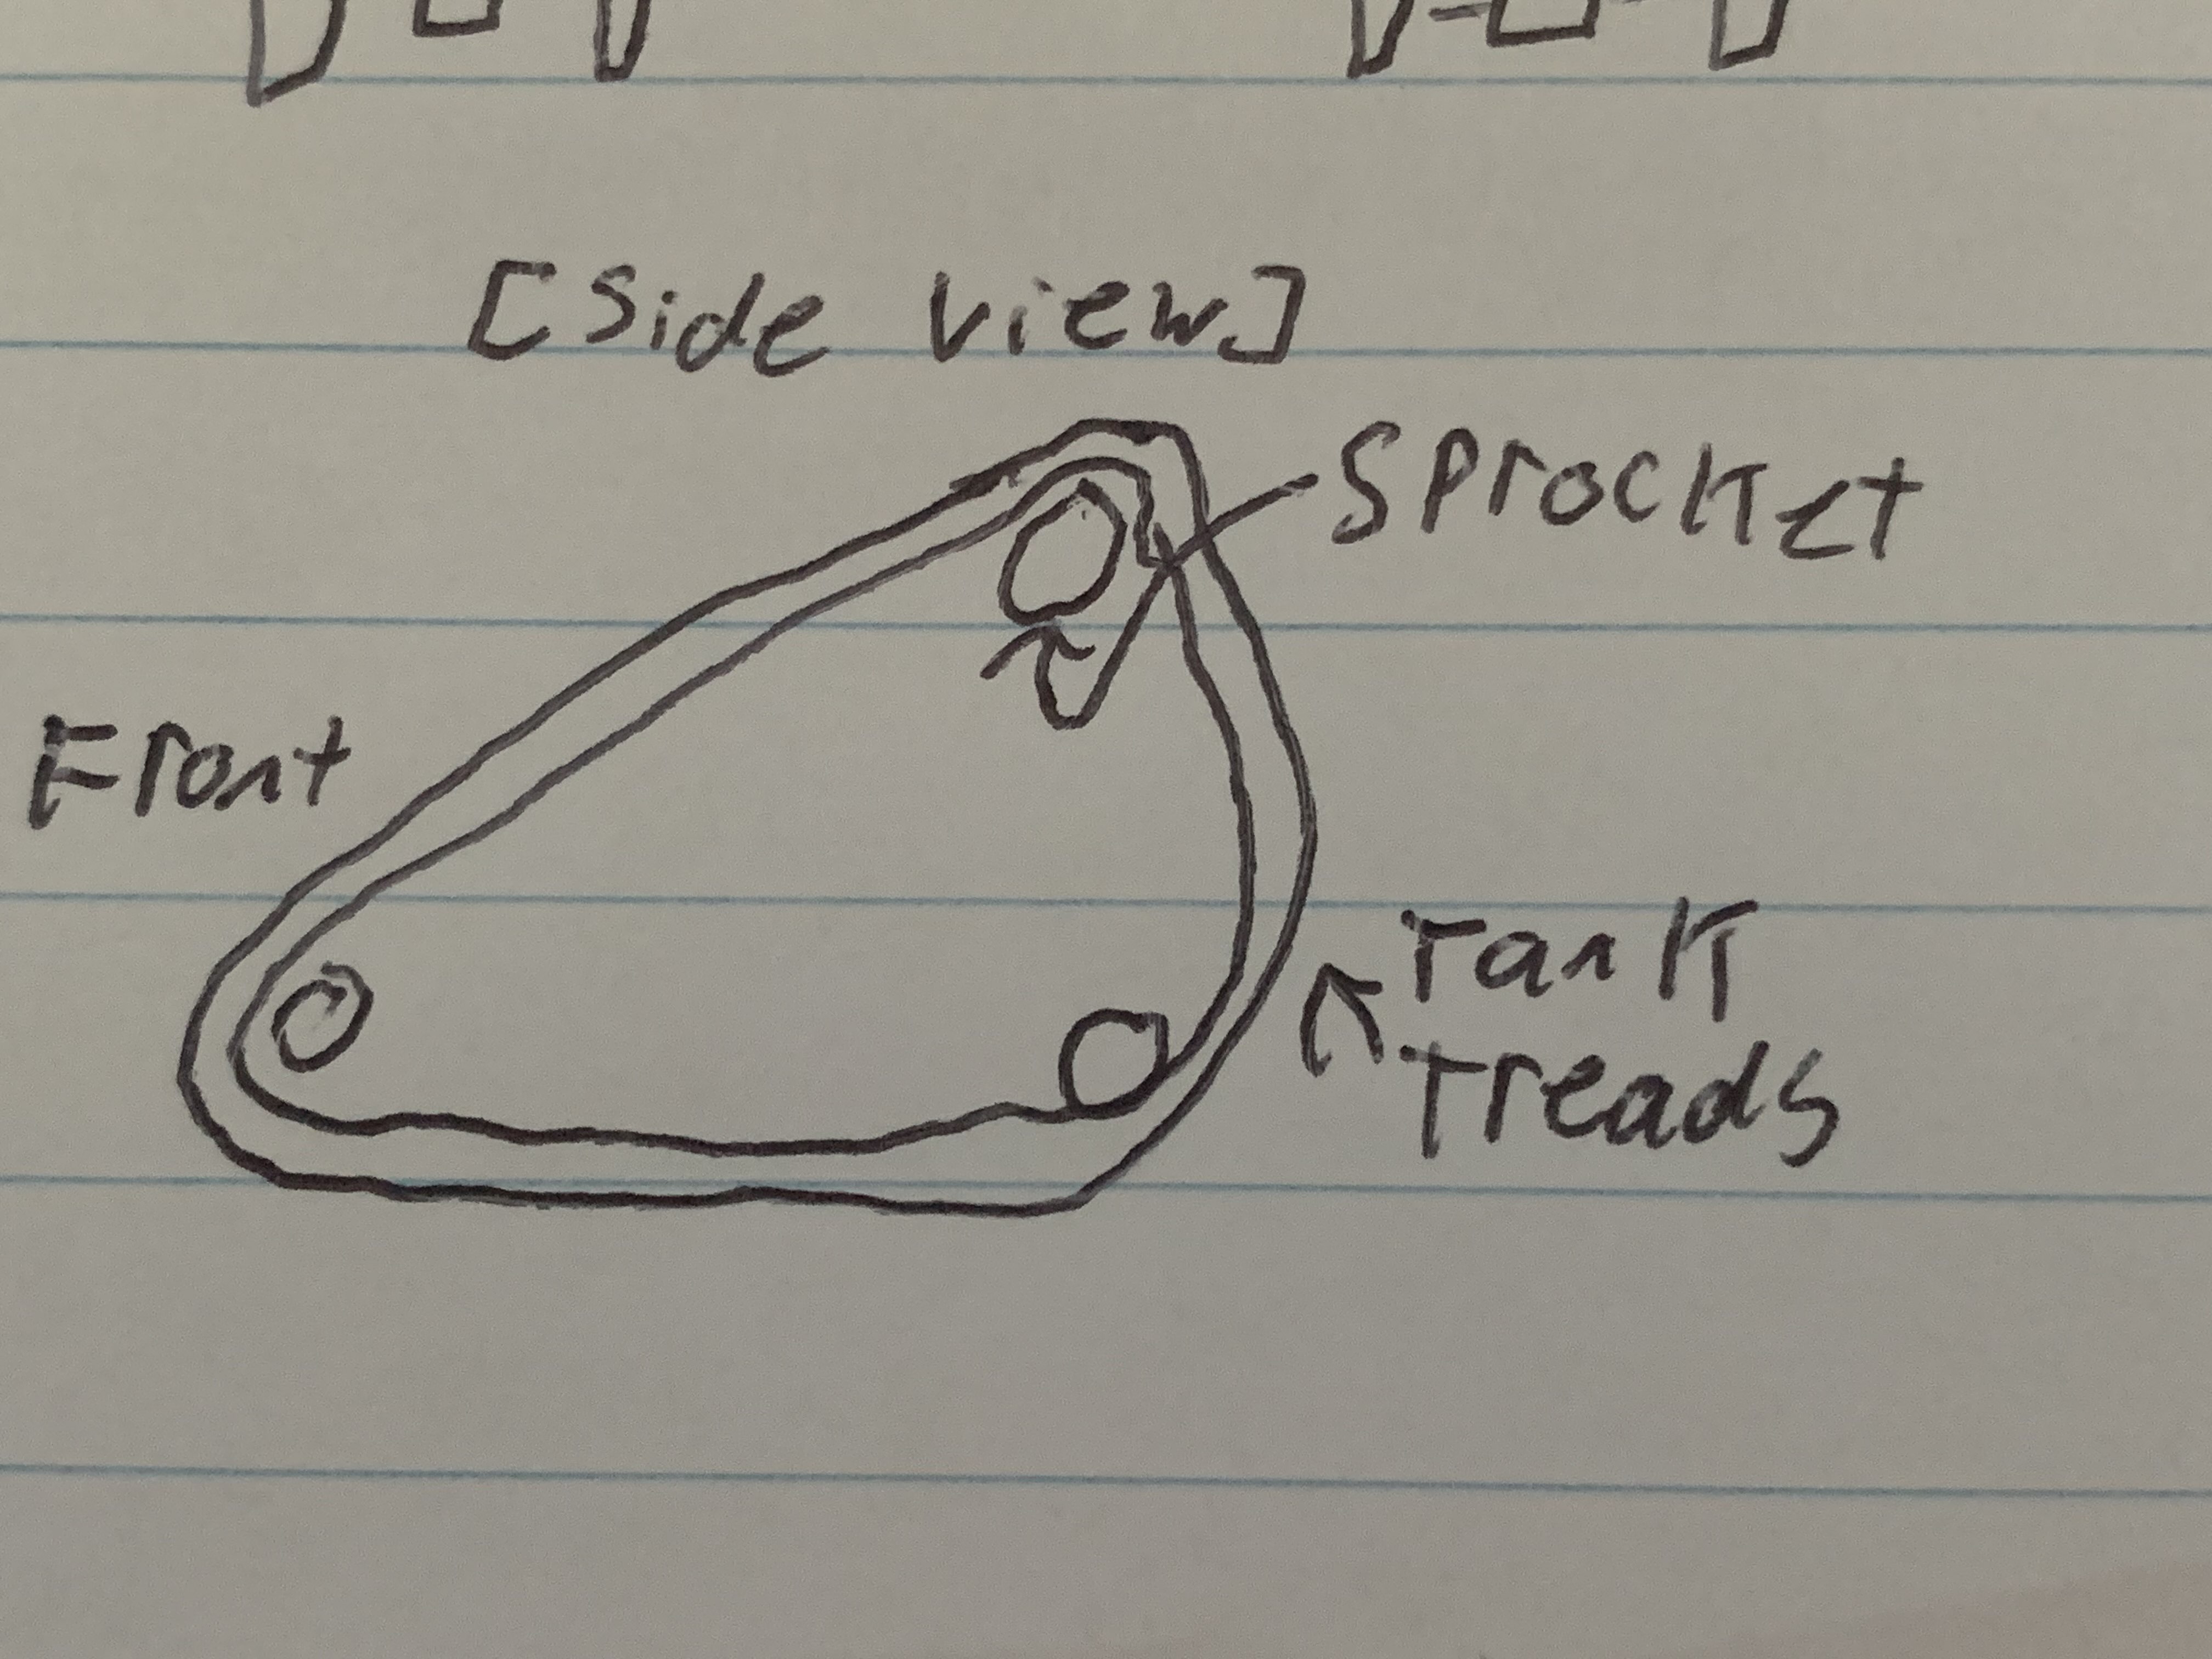 [Side view]
Sprocket
Front
Tank
Treads